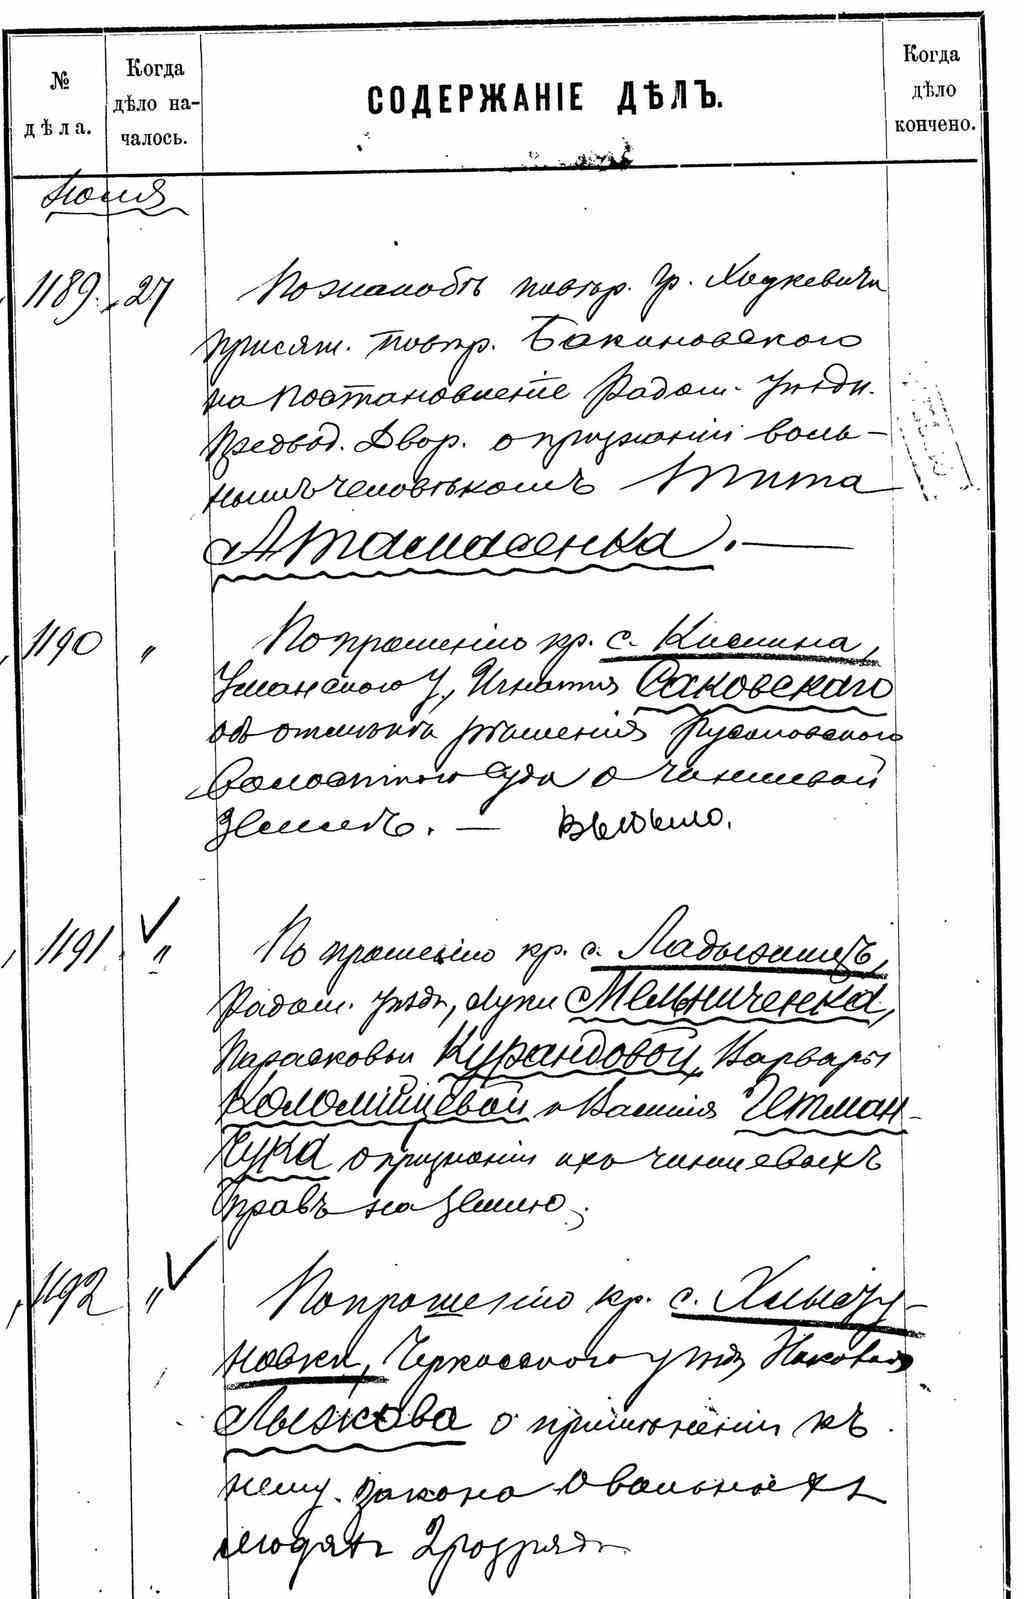 № дѣла.
Когда дѣло на-чалось.
СОДЕРЖАНІЕ ДѢЛЪ.
Когда дѣло кончено.
Июня
1189. 27 По жалобѣ повѣр. гр. Ходкевича
присяж. повѣр. Бакановскаго
на постановленіе Радом. уѣздн.
Предвод. Двор. о признаніи воль-
нымъ человѣкомъ Тита
Атамасенка. —
1190 " По прошенію кр. с. Кислина,
Уманского у., Игнатія Саковскаго
объ отмѣнѣ рѣшенія Русаловского
Волостного Суда о чиншевой
землѣ. — выбыло.
1191 " По прошенію кр. с. Ладыжинъ,
Радом. уѣзда, Луки Мельниченка,
Парасковьи Курандовой, Варвары
Коломійцевой и Василія Гетман-
чука о признаніи ихъ чиншевыхъ
правъ на землю.
1192 " По прошенію кр. с. Хлысту-
новки, Черкасского уѣзда, Яковлева
Лыскова о примѣненіи къ
нему закона о вольныхъ
людяхъ 2 разряда